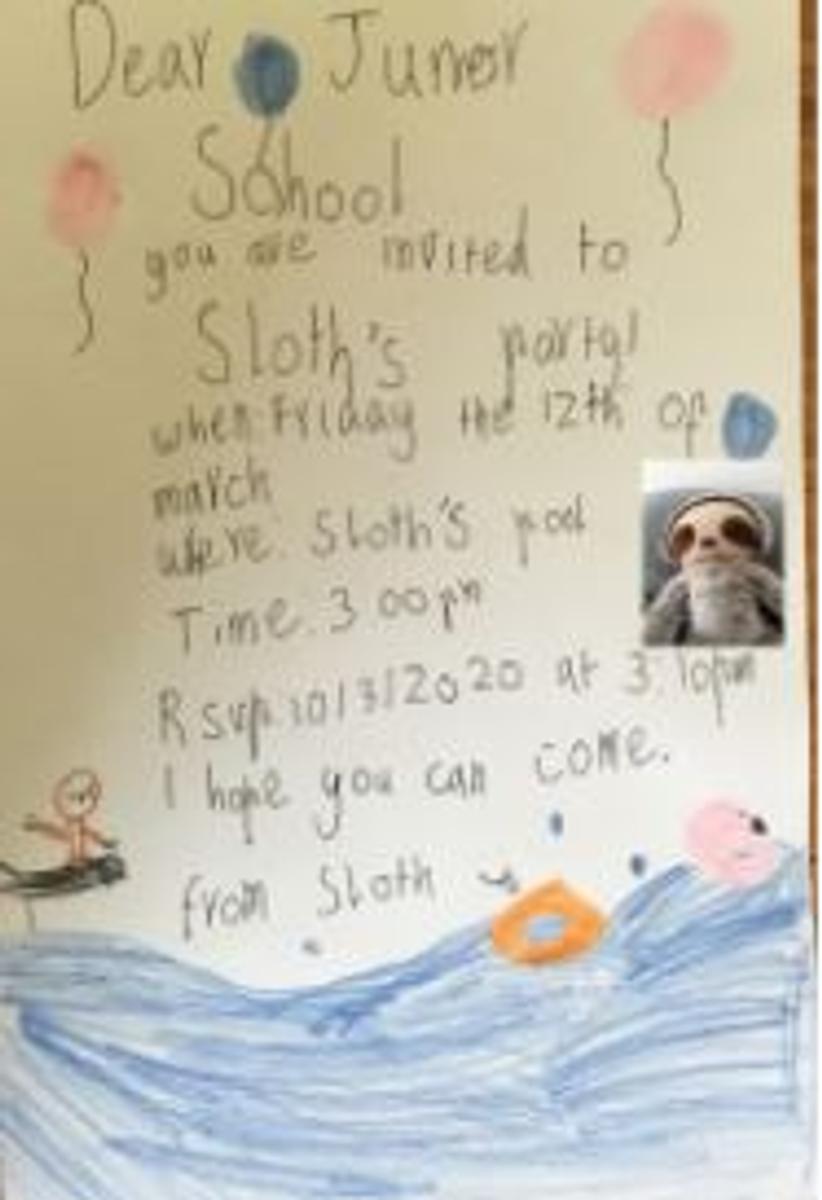 Dear Junior
School
you are invited to
Sloth's party!
when: Friday the 12th of
march
where: Sloth's pool
Time: 3:00pm
Rsvp: 10/3/2020 at 3:10pm
I hope you can come.
from Sloth